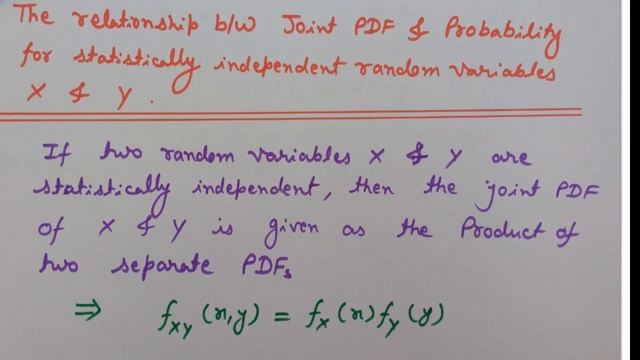 The relationship b/w Joint PDF & Probability
for statistically independent random variables
X & Y.
If two random variables X & Y are
statistically independent, then the joint PDF
of X & Y is given as the Product of
two separate PDFs
⇒ fxy (x,y) = fx (x) fy (y)